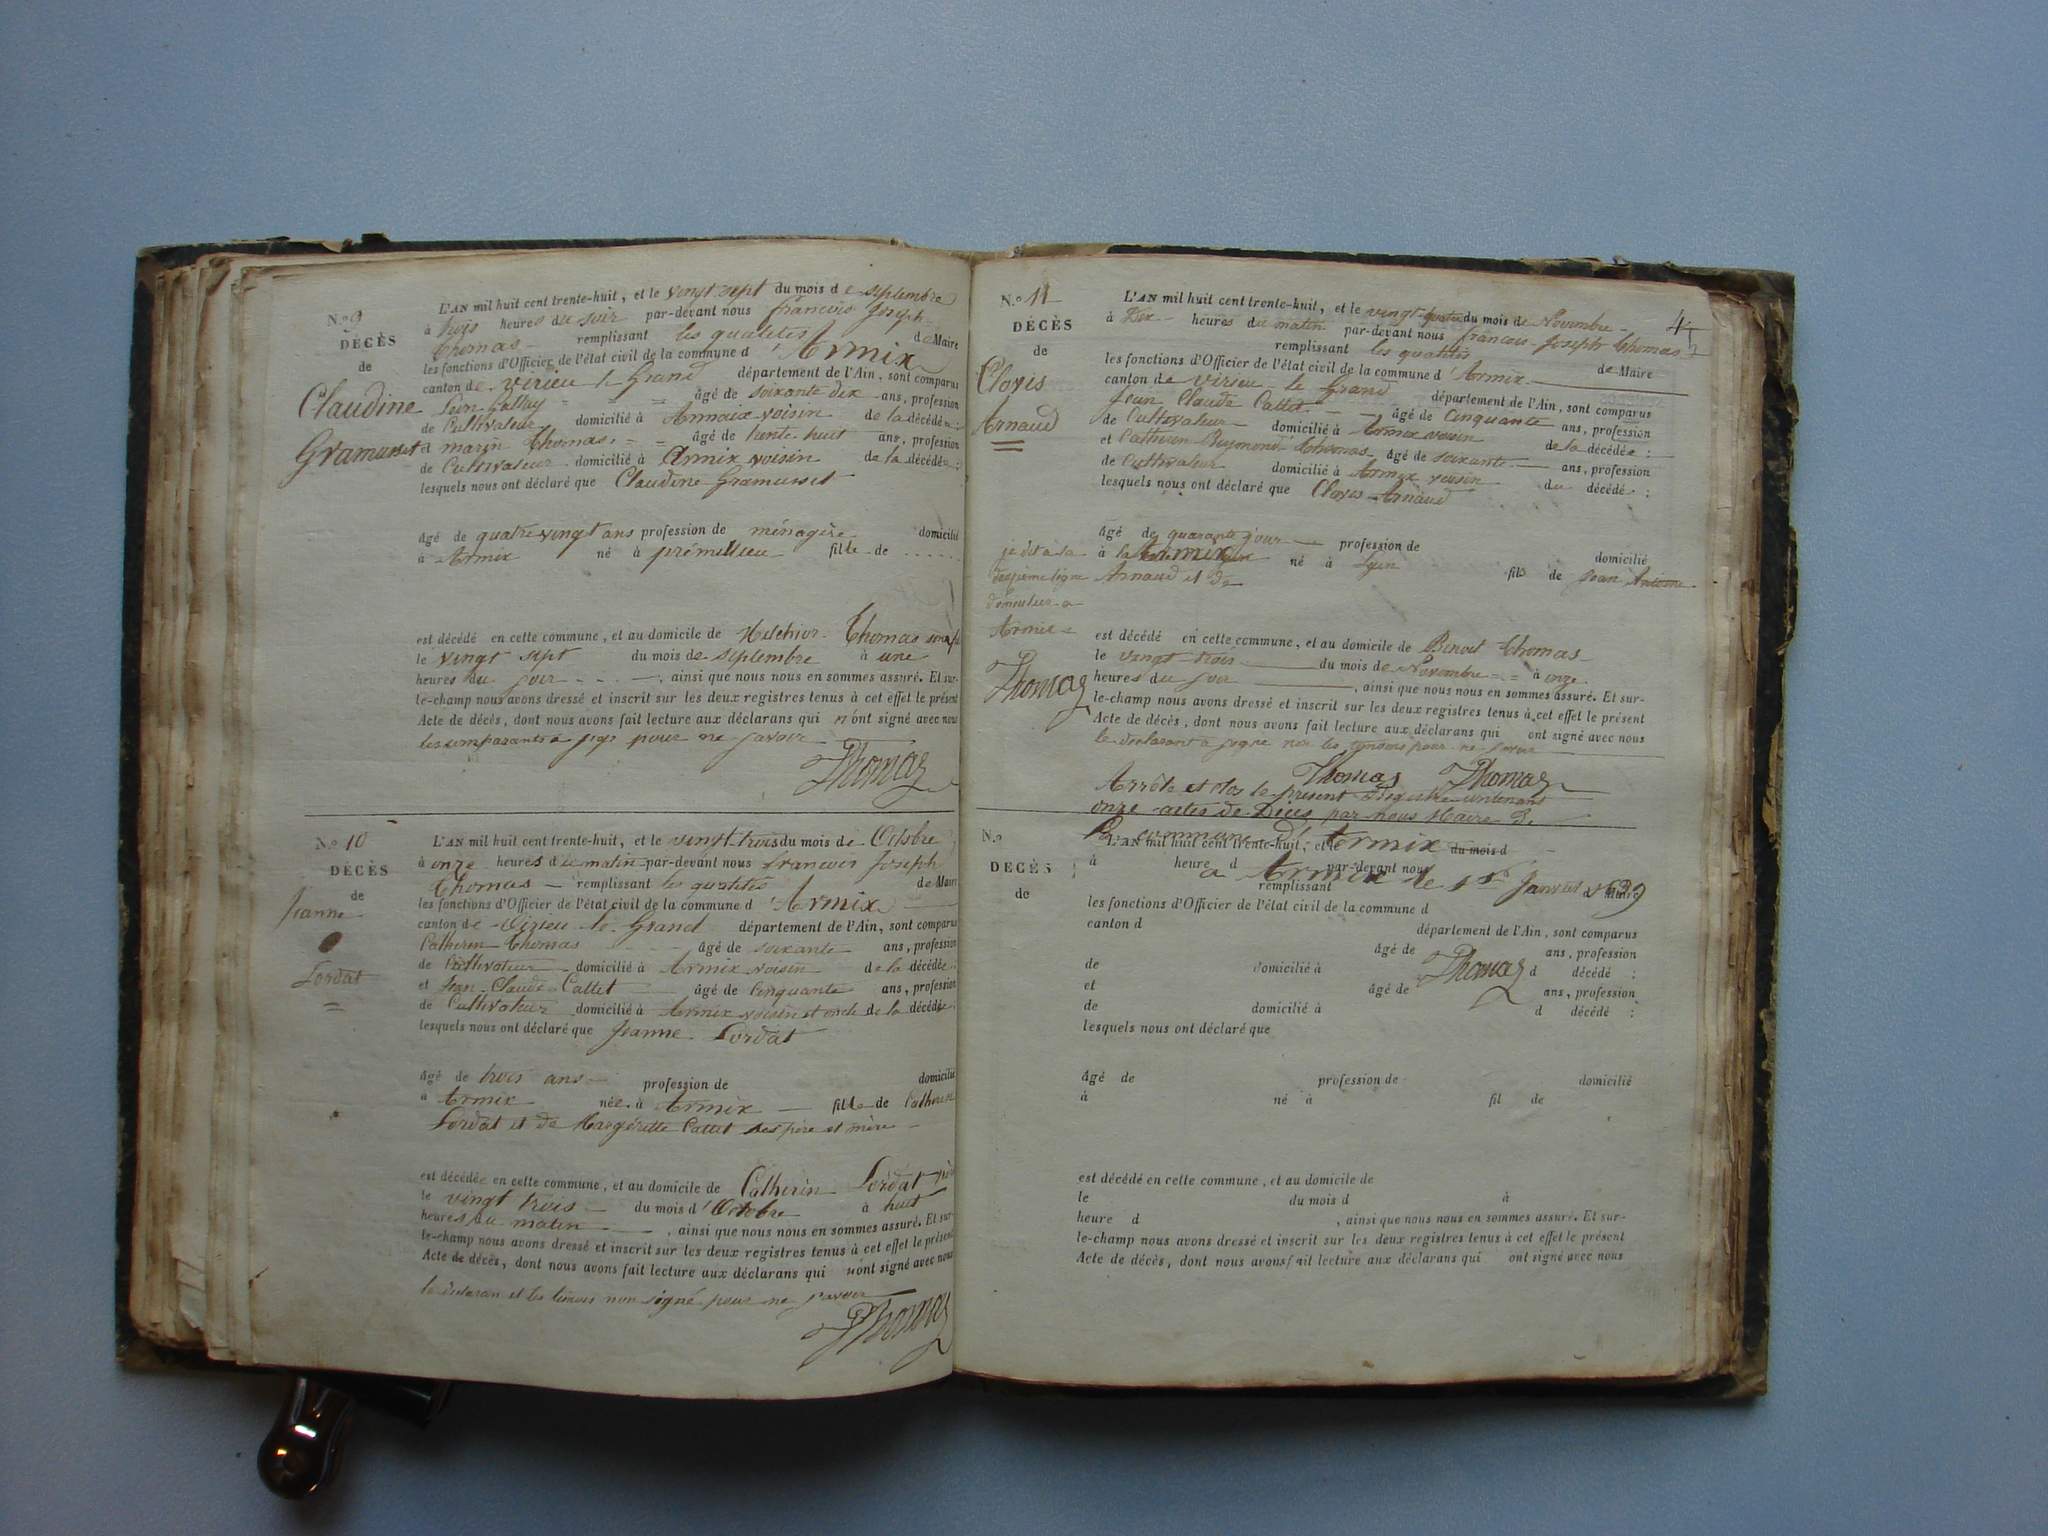 N.o 9
DÉCÈS
de
Claudine
Gramusset
L'AN mil huit cent trente-huit, et le vingt sept du mois de septembre
à trois heures du soir par-devant nous françois Joseph
Thomas remplissant les qualités de Maire
les fonctions d'Officier de l'état civil de la commune d'Armix
canton de virieu le Grand département de l'Ain, sont comparus
âgé de soixante dix ans, profession
de Cultivateur domicilié à Armix voisin de la décédée ;
et Thomas âgé de trente huit ans, profession
de Cultivateur domicilié à Armix voisin de la décédée ;
lesquels nous ont déclaré que Claudine Gramusset
âgé de quatre vingt ans profession de ménagère domicilié
à Armix né à prémillieu fille de
est décédé en cette commune, et au domicile de Melchior Thomas
le vingt sept du mois de septembre à une
heures du soir, ainsi que nous nous en sommes assuré. Et sur-
le-champ nous avons dressé et inscrit sur les deux registres tenus à cet effet le présent
Acte de décès, dont nous avons fait lecture aux déclarans qui n'ont signé avec nous
les comparants pour ne savoir
Thomas
N.o 10
DÉCÈS
de
Jeanne
Lordat
L'AN mil huit cent trente-huit, et le vingt trois du mois de Octobre
à onze heures du matin par-devant nous francois Joseph
Thomas remplissant les qualités de Maire
les fonctions d'Officier de l'état civil de la commune d'Armix
canton de Virieu le Grand département de l'Ain, sont comparus
Catherin Thomas âgé de soixante ans, profession
de Cultivateur domicilié à Armix voisin de la décédée ;
et Jean Claude Cattet âgé de Cinquante ans, profession
de Cultivateur domicilié à Armix voisin et oncle de la décédée
lesquels nous ont déclaré que Jeanne Lordat
âgé de trois ans profession de domicilié
à Armix née à Armix fille de Catherin
Lordat et de Margéritte Cattet ses père et mère
est décédée en cette commune, et au domicile de Catherin Lordat
le vingt trois du mois d'Octobre à huit
heures du matin, ainsi que nous nous en sommes assuré. Et sur-
le-champ nous avons dressé et inscrit sur les deux registres tenus à cet effet le présent
Acte de décès, dont nous avons fait lecture aux déclarans qui n'ont signé avec nous
le déclaran et les témois non signé pour ne savoir
Thomas
N.o 11
DÉCÈS
de
Clovis
Arnaud
L'AN mil huit cent trente-huit, et le vingt quatre du mois de Novembre
à Dix heures du matin par-devant nous francois Joseph Thomas
remplissant les qualités de Maire
les fonctions d'Officier de l'état civil de la commune d'Armix
canton de virieu le Grand département de l'Ain, sont comparus
Jean Claude Cattet âgé de Cinquante ans, profession
de Cultivateur domicilié à Armix voisin de la décédée ;
et Catherin Thomas âgé de soixante ans, profession
de Cultivateur domicilié à Armix voisin du décédé ;
lesquels nous ont déclaré que Clovis Arnaud
âgé de quarante jour profession de domicilié
à né à Lyon fils de Jean Antoine
Arnaud et de
Armix
Thomas
est décédé en cette commune, et au domicile de Benoit Thomas
le vingt trois du mois de Novembre à onze
heures du soir, ainsi que nous nous en sommes assuré. Et sur-
le-champ nous avons dressé et inscrit sur les deux registres tenus à cet effet le présent
Acte de décès, dont nous avons fait lecture aux déclarans qui ont signé avec nous
le déclarant a signé non les témoins pour ne savoir
Thomas Thomas
Arrêté et clos le présent Registre contenant
onze actes de Décès par nous Maire de
la commune d'Armix
à Armix le 1er Janvier 1839
Thomas
N.o
DÉCÈS
de
L'AN mil huit cent trente-huit, et le du mois d
à heure d par-devant nous
remplissant d Maire
les fonctions d'Officier de l'état civil de la commune d
canton d département de l'Ain, sont comparus
âgé de ans, profession
de domicilié à d décédé ;
et âgé de ans, profession
de domicilié à d décédé ;
lesquels nous ont déclaré que
âgé de profession de domicilié
à né à fil de
est décédé en cette commune, et au domicile de
le du mois d à
heure d , ainsi que nous nous en sommes assuré. Et sur-
le-champ nous avons dressé et inscrit sur les deux registres tenus à cet effet le présent
Acte de décès, dont nous avons fait lecture aux déclarans qui ont signé avec nous